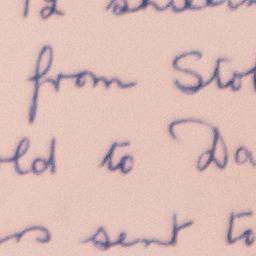 12
from Sto
ld to Da
sent to